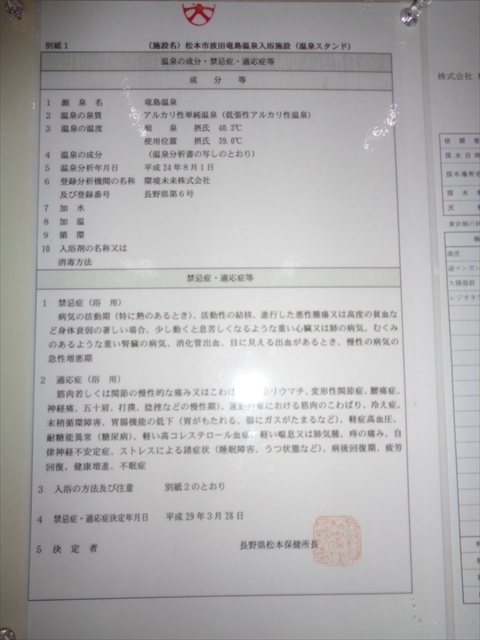 別紙1 （施設名）松本市波田竜島温泉入浴施設（温泉スタンド）
温泉の成分・禁忌症・適応症等
成分等
1 源泉名 竜島温泉
2 温泉の泉質 アルカリ性単純温泉（低張性アルカリ性温泉）
3 温泉の温度 源泉 摂氏 40.3℃
使用位置 摂氏 39.0℃
4 温泉の成分 （温泉分析書の写しのとおり）
5 温泉分析年月日 平成24年8月1日
6 登録分析機関の名称 環境未来株式会社
及び登録番号 長野県第6号
7 加水
8 加温
9 循環
10 入浴剤の名称又は
消毒方法
禁忌症・適応症等
1 禁忌症（浴用）
病気の活動期（特に熱のあるとき）、活動性の結核、進行した悪性腫瘍又は高度の貧血な
ど身体衰弱の著しい場合、少し動くと息苦しくなるような重い心臓又は肺の病気、むくみ
のあるような重い腎臓の病気、消化管出血、目に見える出血があるとき、慢性の病気の
急性増悪期
2 適応症（浴用）
筋肉若しくは関節の慢性的な痛み又はこわ リウマチ、変形性関節症、腰痛症、
神経痛、五十肩、打撲、捻挫などの慢性期）、運動 における筋肉のこわばり、冷え症、
末梢循環障害、胃腸機能の低下（胃がもたれる、腸にガスがたまるなど）、軽症高血圧、
耐糖能異常（糖尿病）、軽い高コレステロール血症、軽い喘息又は肺気腫、痔の痛み、自
律神経不安定症、ストレスによる諸症状（睡眠障害、うつ状態など）、病後回復期、疲労
回復、健康増進、不眠症
3 入浴の方法及び注意 別紙2のとおり
4 禁忌症・適応症決定年月日 平成29年3月28日
5 決定者 長野県松本保健所長
株式会社